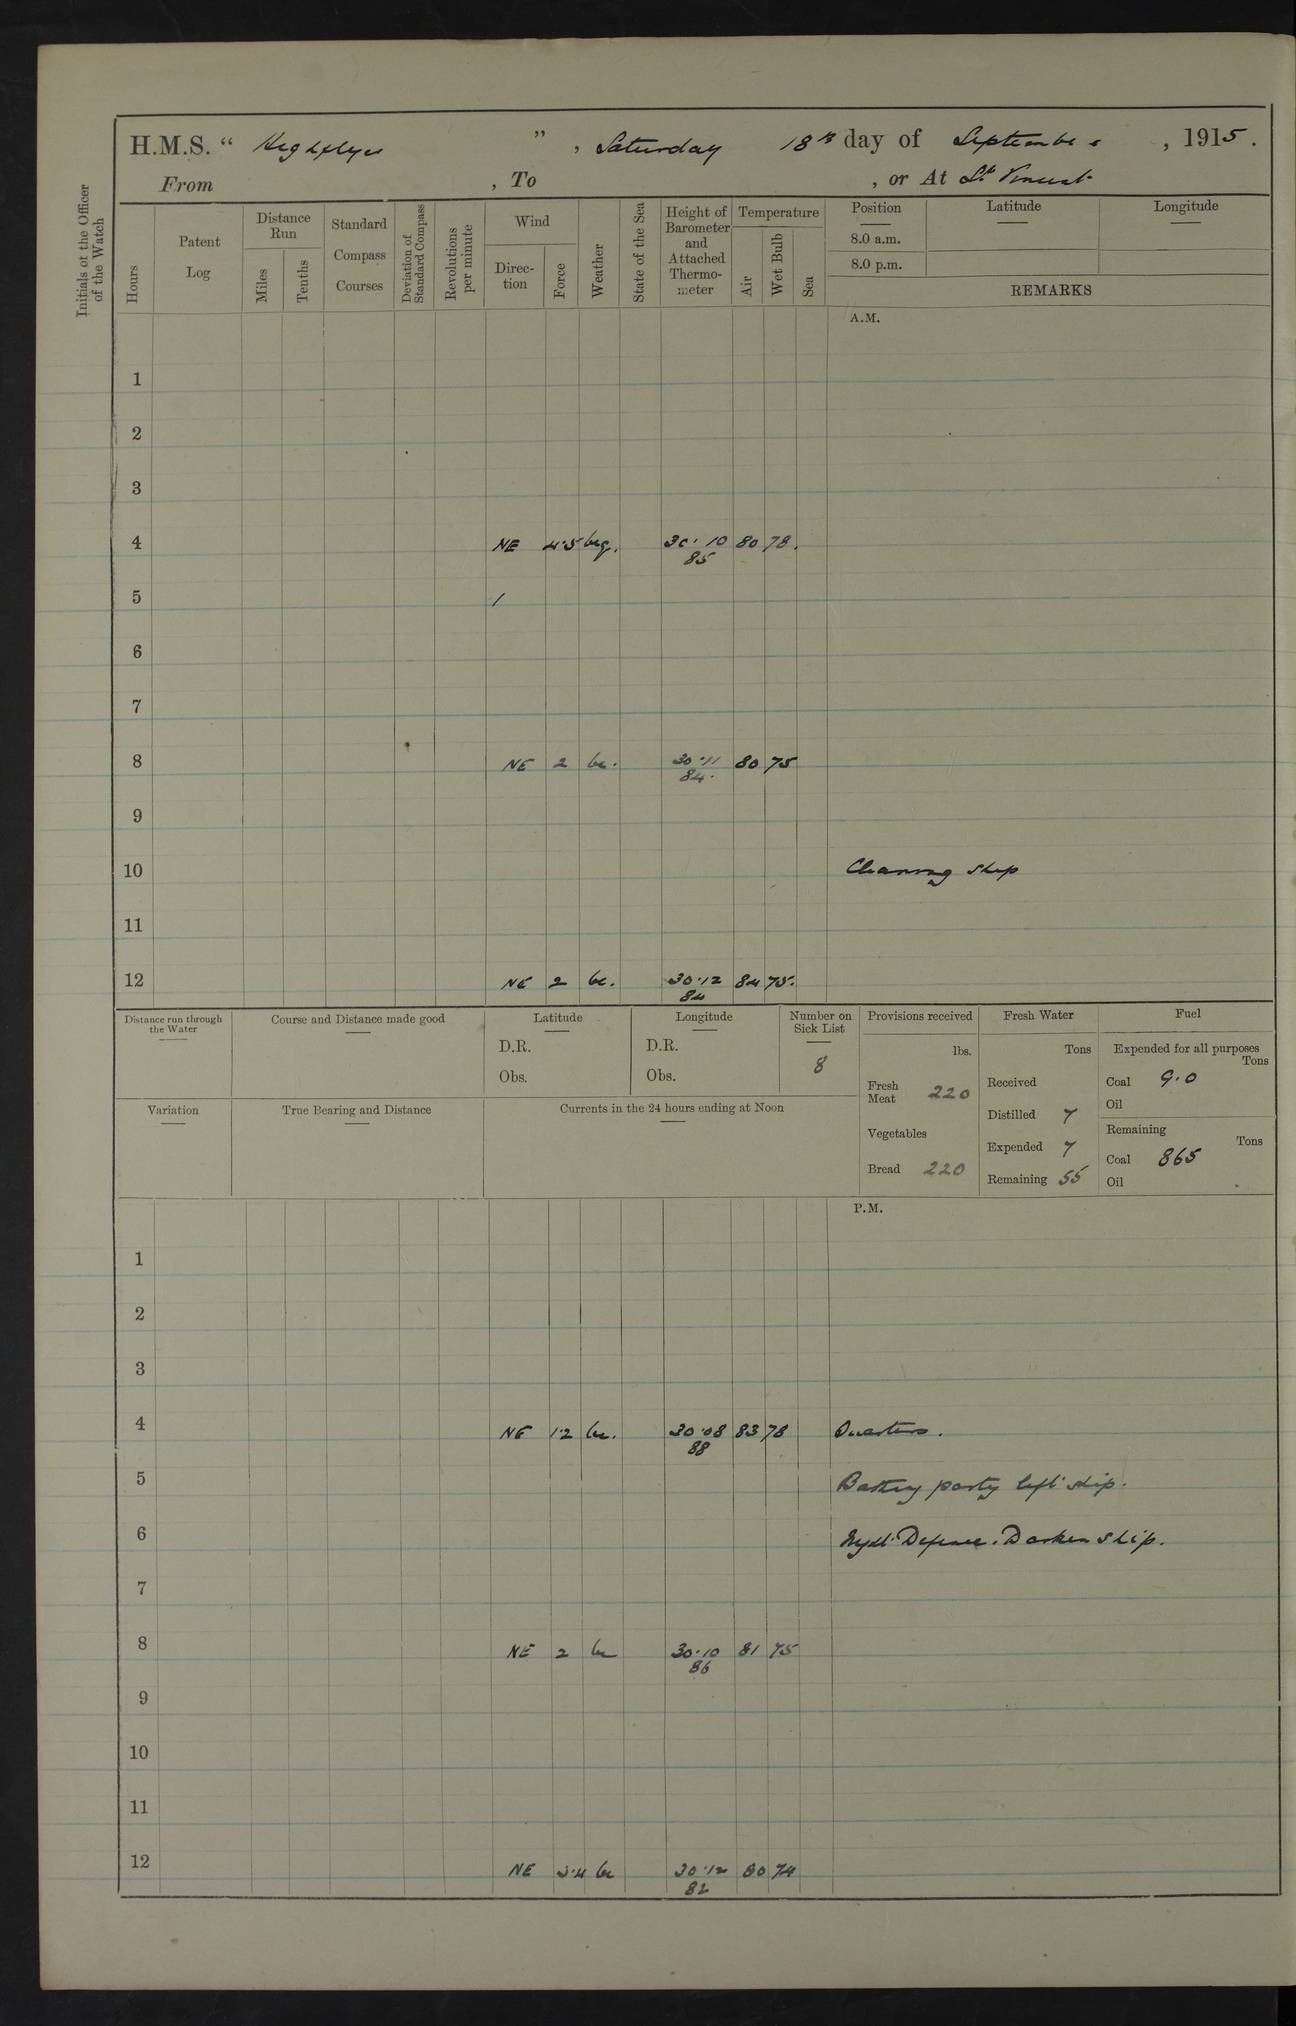 H.M.S. " Highflyer ", Saturday 18th day of September, 1915.
From , To , or At St Vincent
Initials of the Officer of the Watch
Hours
Patent Log
Distance Run
Miles
Tenths
Standard Compass Courses
Deviation of Standard Compass
Revolutions per minute
Wind
Direc-tion
Force
Weather
State of the Sea
Height of Barometer and Attached Thermo-meter
Temperature
Air
Wet Bulb
Sea
Position Latitude Longitude
8.0 a.m.
8.0 p.m.
REMARKS
A.M.
1
2
3
4 NE 4·5 bcq. 30·10 80 78.
85
5 /
6
7
8 NE 2 bc. 30·11 80 75
84.
9
10 Cleaning ship
11
12 NE 2 bc. 30·12 84 75.
84
Distance run through the Water
Course and Distance made good
Latitude
D.R.
Obs.
Longitude
D.R.
Obs.
Number on Sick List
8
Provisions received
lbs.
Fresh Meat 220
Vegetables
Bread 220
Fresh Water
Tons
Received
Distilled 7
Expended 7
Remaining 55
Fuel
Expended for all purposes
Tons
Coal 9·0
Oil
Remaining
Tons
Coal 865
Oil
Variation
True Bearing and Distance
Currents in the 24 hours ending at Noon
P.M.
1
2
3
4 NE 1·2 bc. 30·08 83 78 Quarters.
88
5 Bathing party left ship.
6 Night Defence. Darken ship.
7
8 NE 2 bc 30·10 81 75
86
9
10
11
12 NE 3·4 bc 30·12 80 74
82